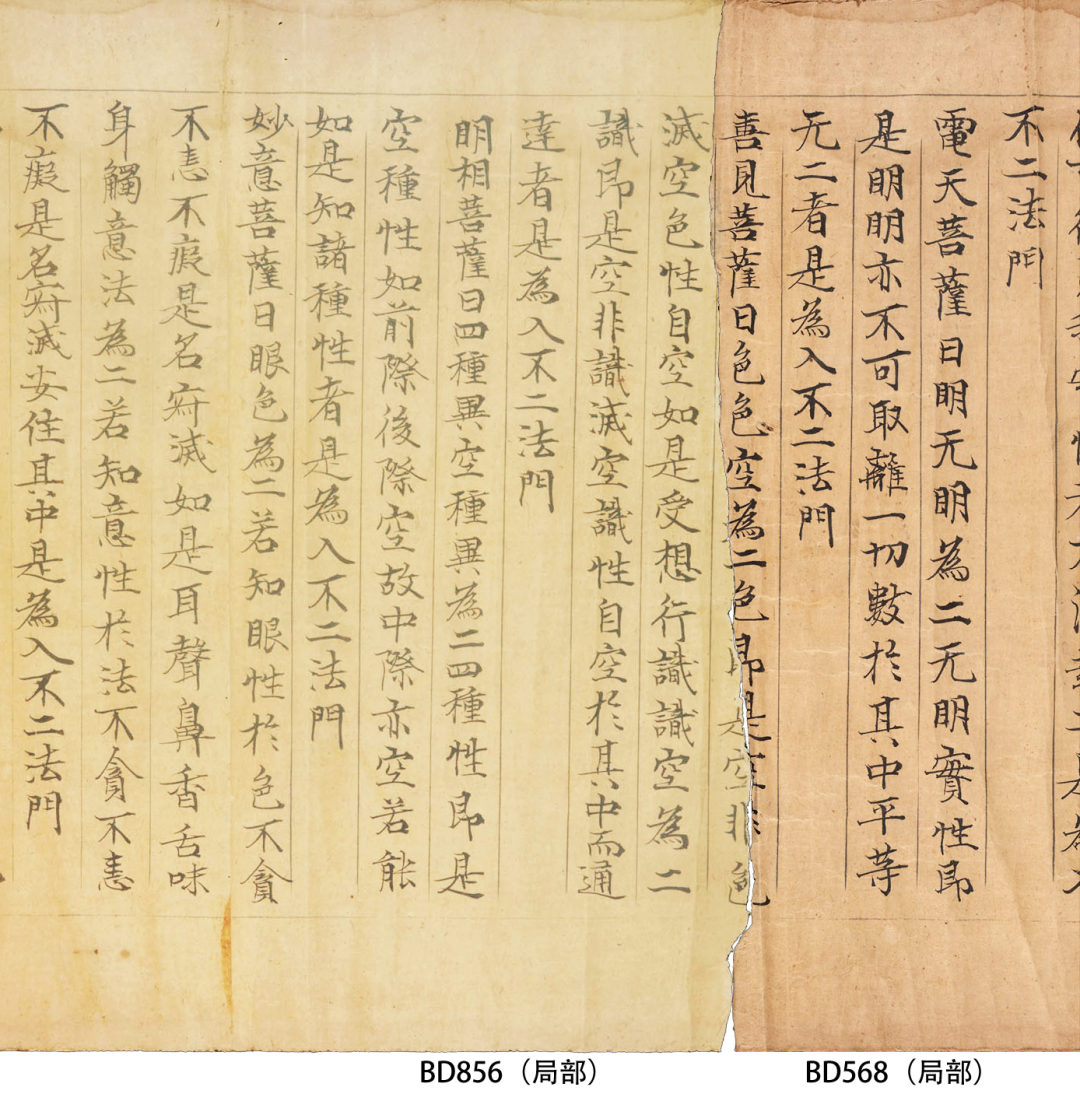 不二法門
電天菩薩曰明无明為二无明實性即
是明明亦不可取離一切數於其中平等
无二者是為入不二法門
善見菩薩曰色色空為二色即是空非色
滅空色性自空如是受想行識識空為二
識即是空非識滅空識性自空於其中而通
達者是為入不二法門
明相菩薩曰四種異空種異為二四種性即是
空種性如前際後際空故中際亦空若能
如是知諸種性者是為入不二法門
妙意菩薩曰眼色為二若知眼性於色不貪
不恚不癡是名寂滅如是耳聲鼻香舌味
身觸意法為二若知意性於法不貪不恚
不癡是名寂滅安住其中是為入不二法門
BD856（局部）
BD568（局部）